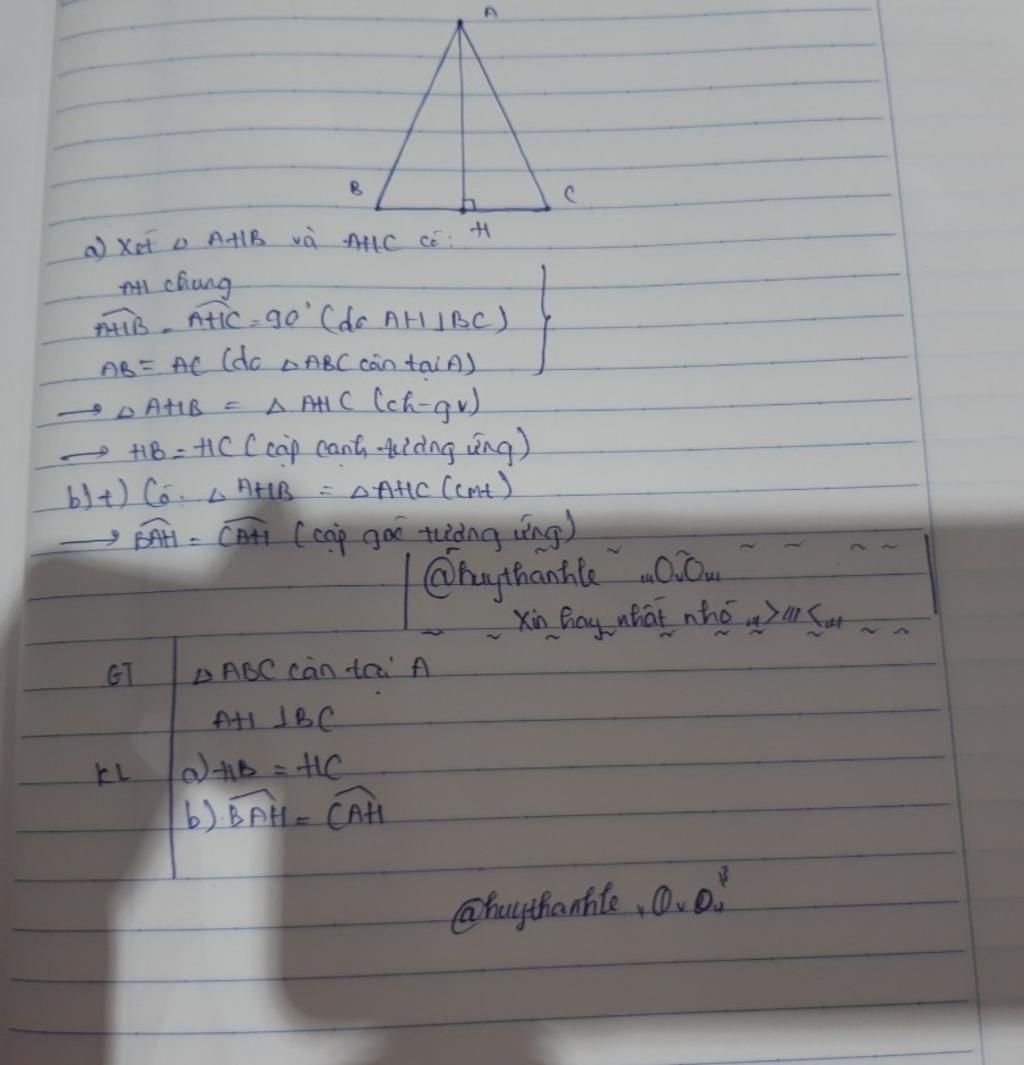 A
B
C
H
a) Xét △ AHB và AHC có:
AH chung
AHB = AHC = 90° (do AH ⊥ BC)
AB = AC (do △ ABC cân tại A)
→ △ AHB = △ AHC (ch-gv)
→ HB = HC (cặp cạnh tương ứng)
b) +) Có: △ AHB = △ AHC (cmt)
→ BAH = CAH (cặp góc tương ứng)
@huythanhle ,,,O.O,,,
Xin hay nhất nhó ,,,>///<,,,
GT △ ABC cân tại A
AH ⊥ BC
KL a) HB = HC
b) BAH = CAH
@huythanhle